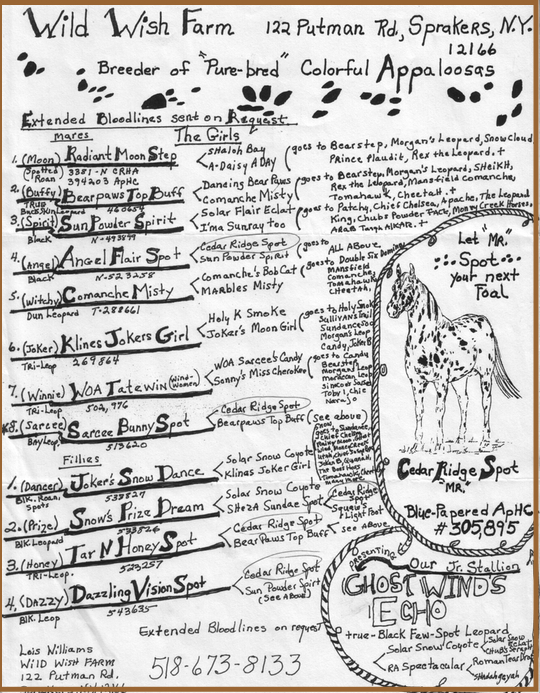 Wild Wish Farm 122 Putman Rd, Sprakers, N.Y.
12166
Breeder of "Pure-bred" Colorful Appaloosas
Extended Bloodlines sent on Request
mares The Girls
1. (Moon) Radiant Moon Step
(Spotted Roan) 3381-N CRHA
394203 ApHC
Shaloh Bay
A-Daisy A Day
goes to Bearstep, Morgan's Leopard, Snowcloud,
Prince Plaudit, Rex the Leopard, +
2. (Buffy) Bearpaws Top Buff
Buckskin Leopard
Dancing Bear Paws
Comanche Misty
goes to Bearstep, Morgan Leopard, SHEIKH,
Rex the Leopard, Mansfield Comanche,
Tomahawk, Cheetah. +
3. (Spirit) Sun Powder Spirit
Black
Solar Flair Eclat
I'ma Sunray too
goes to Patchy, Chief Chelsea, Apache, The Leopard
King, Chubs Powder Face, Money Creek Horses,
4. (Angel) Angel Flair Spot
Black N-523258
Cedar Ridge Spot
Sun Powder Spirit
goes to ALL Above
5. (Witchy) Comanche Misty
Dun Leopard T-288661
Comanche's Bob Cat
Marbles Misty
goes to Double Six Domino
Mansfield
Comanche
Tomahawk
Cheetah,
6. (Joker) Klines Jokers Girl
TRI-Leop 269864
Holy K Smoke
Joker's Moon Girl
goes to Holy Smoke
Sullivans Trail
Morgans Leop
Candy, Joker B
7. (Winnie) WOA Tatewin (Wind-Women)
TRI-Leop 502,976
WOA Sarcee's Candy
Sonny's Miss Cherokee
goes to Candy
Bearstep
Morgans Leop
Toby I, Chie
Navajo
8. (Sarcee) Sarcee Bunny Spot
Bay Leop 513620
Cedar Ridge Spot
Bearpaws Top Buff
(See above)
Fillies
1. (Dancer) Joker's Snow Dance
Blk. Roan, Spots 533827
Solar Snow Coyote
Klinas Joker Girl
2. (Prize) Snow's Prize Dream
Blk-Leopard 533826
Solar Snow Coyote
SHozA Sundae Spot
Cedar Ridge Spot
Squaw's Light Foot
3. (Honey) Tar N Honey Spot
TRI-Leop. 523257
Cedar Ridge Spot
Bear Paws Top Buff
See above
4. (Dazzy) Dazzling Vision Spot
Blk-Leop 543635
Cedar Ridge Spot
Sun Powder Spirit
(See Above)
Extended Bloodlines on request
Lois Williams
Wild Wish Farm
122 Putman Rd.
518-673-8133
Let "MR."
Spot
your next
Foal
Cedar Ridge Spot
"MR."
Blue-Papered ApHC
# 305,895
Presenting
Our Jr. Stallion
GHOST WIND'S
ECHO
true-Black Few-Spot Leopard
Solar Snow Coyote
RA Spectacular